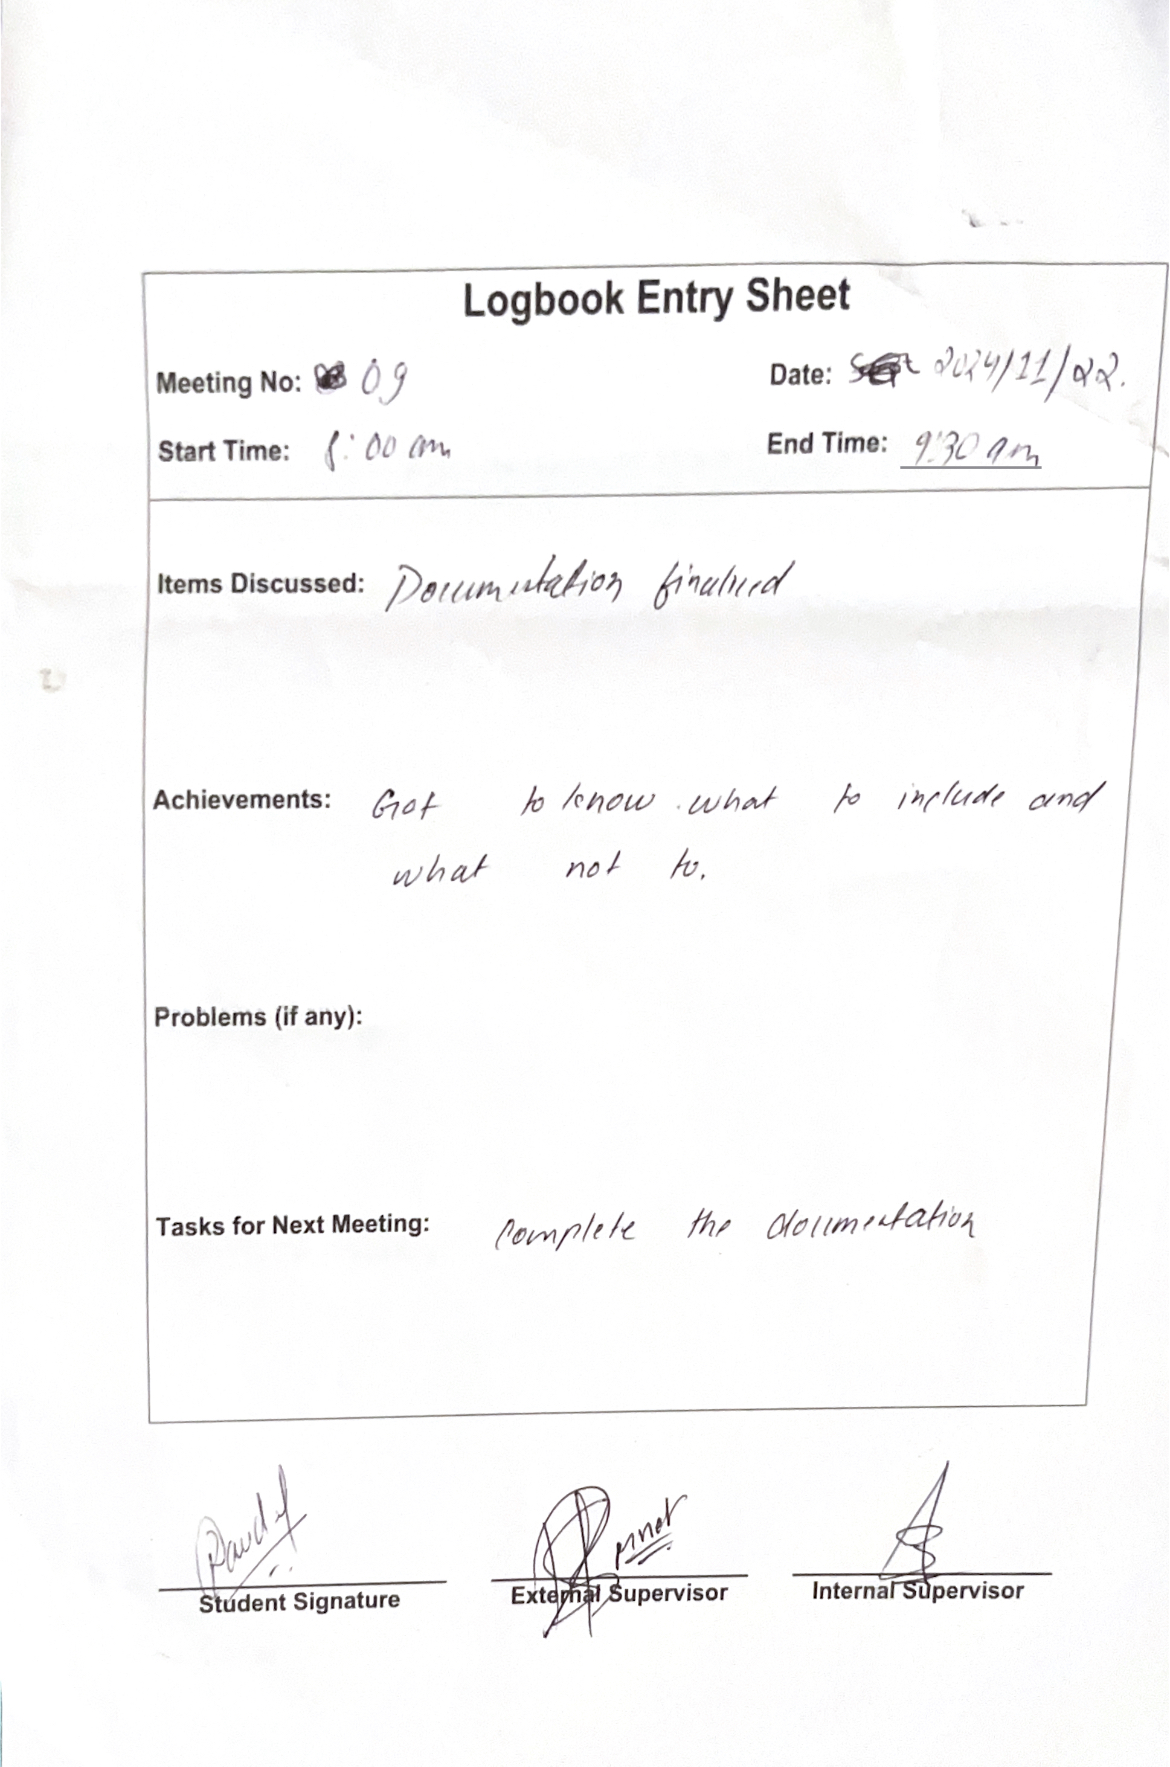 Logbook Entry Sheet
Meeting No: 09
Date: 2024/11/22.
Start Time: 8:00 am
End Time: 9:30 am
Items Discussed: Documentation finalized
Achievements: Got to know what to include and
what not to.
Problems (if any):
Tasks for Next Meeting: Complete the documentation
Student Signature
External Supervisor
Internal Supervisor